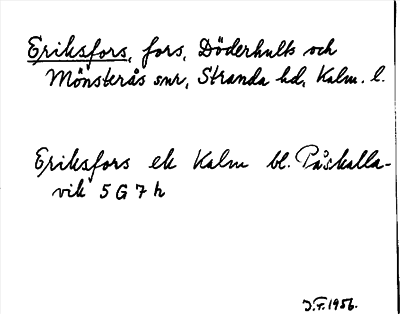 Eriksfors, fors, Döderhults och
Mönsterås snr, Stranda hd, Kalm. l.
Eriksfors ek Kalm bl. Påskalla-
vik 5 G 7 h
J.F. 1956.